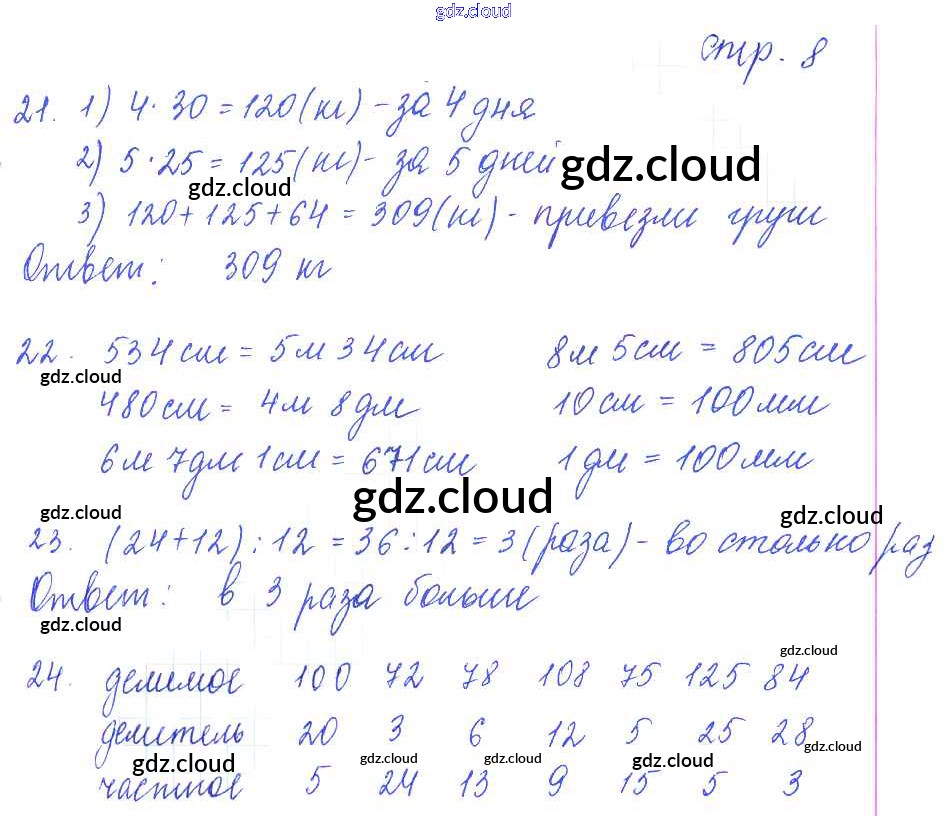 gdz.cloud
стр. 8
21. 1) 4 · 30 = 120 (кг) - за 4 дня
2) 5 · 25 = 125 (кг) - за 5 дней
gdz.cloud
gdz.cloud
3) 120 + 125 + 64 = 309 (кг) - привезли груш
Ответ: 309 кг
22. 534 см = 5 м 34 см 8 м 5 см = 805 см
gdz.cloud
480 см = 4 м 8 дм 10 см = 100 мм
6 м 7 дм 1 см = 671 см 1 дм = 100 мм
gdz.cloud
gdz.cloud
gdz.cloud
23. (24 + 12) : 12 = 36 : 12 = 3 (раза) - во столько раз
Ответ: в 3 раза больше
gdz.cloud
gdz.cloud
24. делимое 100 72 78 108 75 125 84
делитель 20 3 6 12 5 25 28
gdz.cloud
gdz.cloud gdz.cloud gdz.cloud gdz.cloud
частное 5 24 13 9 15 5 3